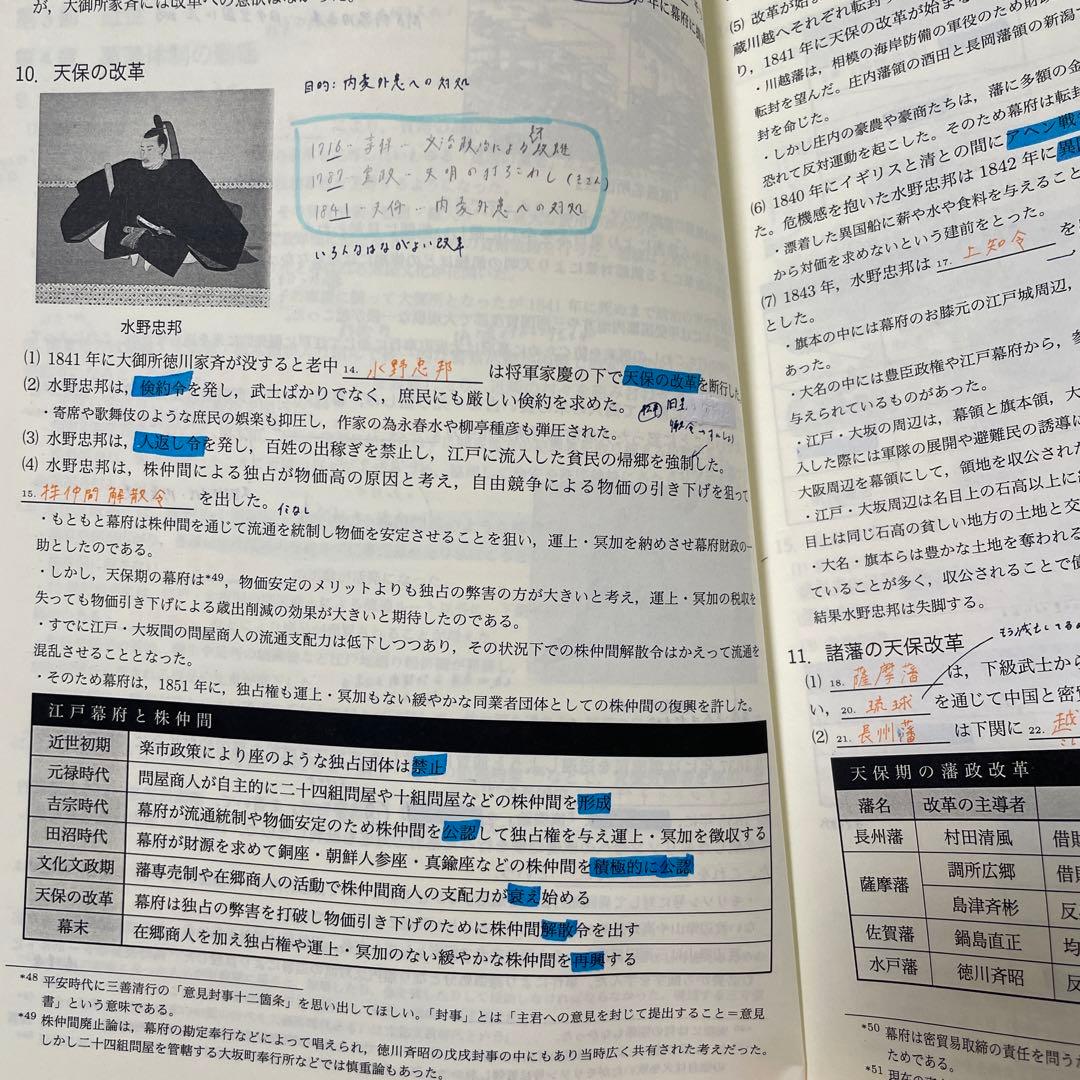 が，大御所家斉には改革への意欲はなかった。
10. 天保の改革
目的: 内憂外患への対処
1716 - 享保 -
1787 - 寛政 - 天明の打ちこわし
1841 - 天保 - 内憂外患への対処
水野忠邦
(1) 1841 年に大御所徳川家斉が没すると老中 14. 水野忠邦 は将軍家慶の下で天保の改革を断行した。
(2) 水野忠邦は，倹約令を発し，武士ばかりでなく，庶民にも厳しい倹約を求めた。
・寄席や歌舞伎のような庶民の娯楽も抑圧し，作家の為永春水や柳亭種彦も弾圧された。
(3) 水野忠邦は，人返し令を発し，百姓の出稼ぎを禁止し，江戸に流入した貧民の帰郷を強制した。
(4) 水野忠邦は，株仲間による独占が物価高の原因と考え，自由競争による物価の引き下げを狙って
15. 株仲間解散令 を出した。
・もともと幕府は株仲間を通じて流通を統制し物価を安定させることを狙い，運上・冥加を納めさせ幕府財政の一
助としたのである。
・しかし，天保期の幕府は*49，物価安定のメリットよりも独占の弊害の方が大きいと考え，運上・冥加の税収を
失っても物価引き下げによる歳出削減の効果が大きいと期待したのである。
・すでに江戸・大坂間の問屋商人の流通支配力は低下しつつあり，その状況下での株仲間解散令はかえって流通を
混乱させることとなった。
・そのため幕府は，1851 年に，独占権も運上・冥加もない緩やかな同業者団体としての株仲間の復興を許した。
江戸幕府と株仲間
近世初期 楽市政策により座のような独占団体は禁止
元禄時代 問屋商人が自主的に二十四組問屋や十組問屋などの株仲間を形成
吉宗時代 幕府が流通統制や物価安定のため株仲間を公認して独占権を与え運上・冥加を徴収する
田沼時代 幕府が財源を求めて銅座・朝鮮人参座・真鍮座などの株仲間を積極的に公認
文化文政期 藩専売制や在郷商人の活動で株仲間商人の支配力が衰え始める
天保の改革 幕府は独占の弊害を打破し物価引き下げのために株仲間解散令を出す
幕末 在郷商人を加え独占権や運上・冥加のない緩やかな株仲間を再興する
*48 平安時代に三善清行の「意見封事十二箇条」を思い出してほしい。「封事」とは「主君への意見を封じて提出すること＝意見
書」という意味である。
*49 株仲間廃止論は，幕府の勘定奉行などによって唱えられ，徳川斉昭の戊戌封事の中にもあり当時広く共有された考えだった。
しかし二十四組問屋を管轄する大坂町奉行所などでは慎重論もあった。
(5) 改革が始
蔵川越へそれぞれ転封
り，1841 年に天保の改革が始ま
・川越藩は，相模の海岸防備の軍役のため財政
転封を望んだ。庄内藩領の酒田と長岡藩領の新潟
封を命じた。
・しかし庄内の豪農や豪商たちは，藩に多額の金
恐れて反対運動を起こした。そのため幕府は転封
(6) 1840 年にイギリスと清との間にアヘン戦
た。危機感を抱いた水野忠邦は 1842 年に異
・漂着した異国船に薪や水や食料を与えること
から対価を求めないという建前をとった。
(7) 1843 年，水野忠邦は 17. 上知令 を
とした。
・旗本の中には幕府のお膝元の江戸城周辺，
あった。
・大名の中には豊臣政権や江戸幕府から，参
与えられているものがあった。
・江戸・大坂の周辺は，幕領と旗本領，大
入した際には軍隊の展開や避難民の誘導に
大阪周辺を幕領にして，領地を収公された
・江戸・大坂周辺は名目上の石高以上に
目上は同じ石高の貧しい地方の土地と交
・大名・旗本らは豊かな土地を奪われる
ていることが多く，収公されることで債
結果水野忠邦は失脚する。
11. 諸藩の天保改革
(1) 18. 薩摩藩 は，下級武士から
い，20. 琉球 を通じて中国と密
(2) 21. 長州藩 は下関に 22. 越
天保期の藩政改革
藩名 改革の主導者
長州藩 村田清風 借財
薩摩藩 調所広郷 借財
島津斉彬 反
佐賀藩 鍋島直正 均
水戸藩 徳川斉昭 反
*50 幕府は密貿易取締の責任を問うた
ためである。
*51 現在の